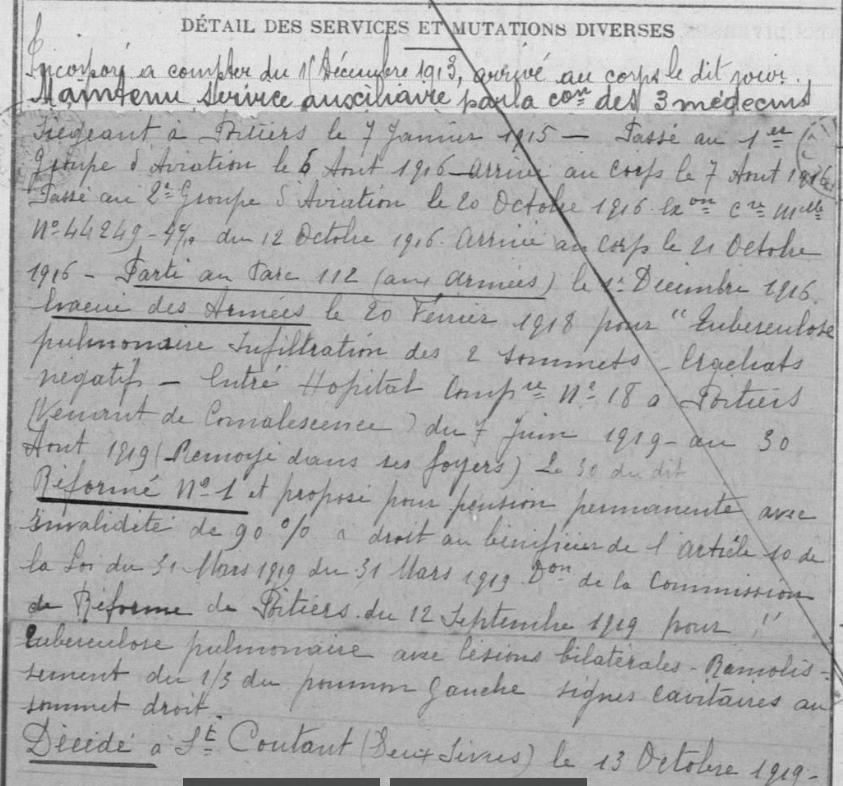 DÉTAIL DES SERVICES ET MUTATIONS DIVERSES
Incorporé à compter du 1r Décembre 1913, arrivé au corps le dit jour.
Maintenu service auxiliaire par la con des 3 médecins
siégeant à Poitiers le 7 Janvier 1915 — Passé au 1er
Groupe d'Aviation le 6 Aout 1916 — arrivé au corps le 7 Aout 1916
Passé au 2e Groupe d'Aviation le 20 Octobre 1916 Exon Cre Mlle
No 44249 - du 12 Octobre 1916. Arrivé au corps le 21 Octobre
1916 - Parti au Parc 112 (aux armées) le 1r Décembre 1916.
Evacué des Armées le 20 Février 1918 pour "Tuberculose
pulmonaire Infiltration des 2 sommets - Crachats
négatifs — Entré Hopital Compre No 18 à Poitiers
(Venant de Convalescence) du 7 Juin 1919 - au 30
Aout 1919 (Renvoyé dans ses foyers) Le 30 du dit
Réformé No 1 et proposé pour pension permanente avec
invalidité de 90 % a droit au bénéfice de l'article 10 de
la Loi du 31 Mars 1919 du 31 Mars 1919 Don de la Commission
de Réforme de Poitiers du 12 Septembre 1919 pour "
tuberculose pulmonaire avec lésions bilatérales - Ramolis-
sement du 1/3 du poumon gauche signes cavitaires au
sommet droit.
Décédé à St Coutant (Deux Sèvres) le 13 Octobre 1919 -